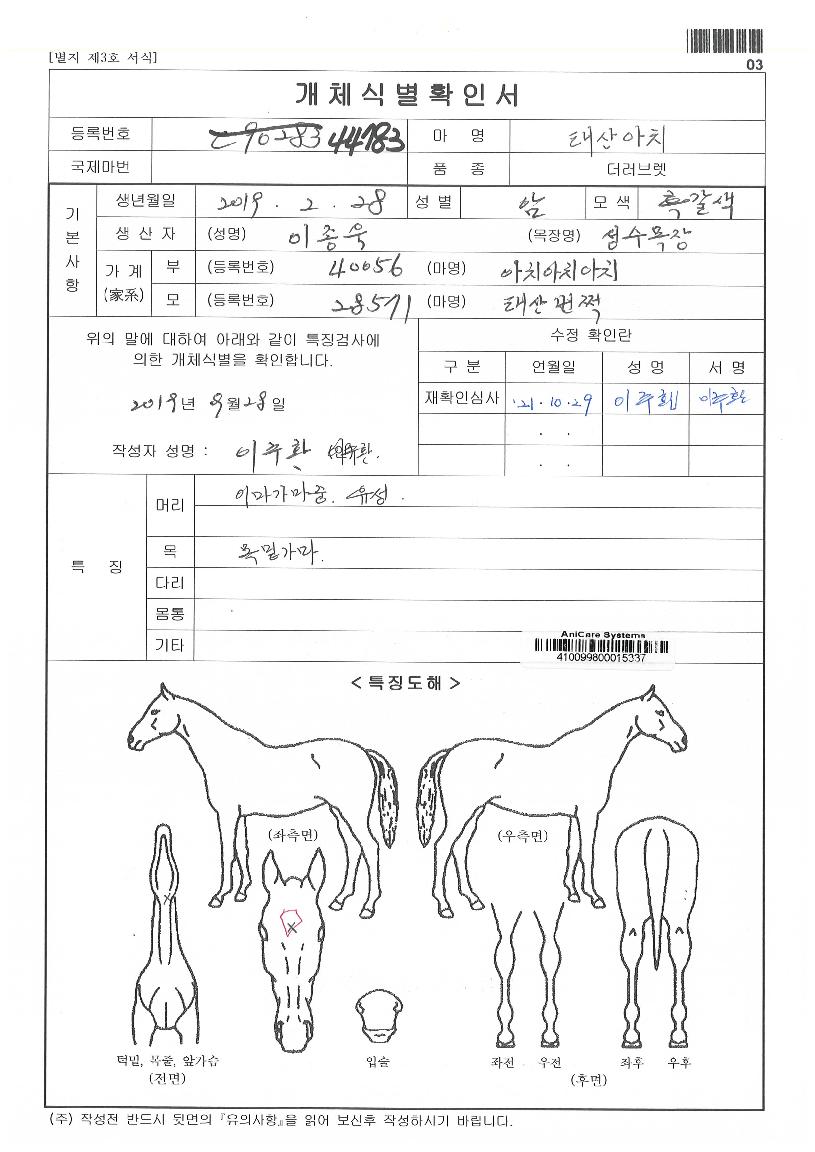 [별지 제3호 서식]
03
개체식별확인서
등록번호 44783 마 명 태산아치
국제마번 품 종 더러브렛
기본사항
생년월일 2019 . 2 . 28 성 별 암 모 색 흑갈색
생 산 자 (성명) 이종욱 (목장명) 성수목장
가 계 (家系) 부 (등록번호) 40056 (마명) 아치아치아치
모 (등록번호) 28571 (마명) 태산번쩍
위의 말에 대하여 아래와 같이 특징검사에
의한 개체식별을 확인합니다.
2019년 9월 28일
작성자 성명 : 이주환 이주환.
수정 확인란
구 분 언월일 성 명 서 명
재확인심사 '21 . 10 . 29 이주환 이주환
. .
. .
특 징
머리 이마가마중. 유성.
목 목밑가마.
다리
몸통
기타
AniCare Systems
410099800015337
< 특징도해 >
(좌측면) (우측면)
턱밑, 목줄, 앞가슴 입술 좌전 우전 좌후 우후
(전면) (후면)
(주) 작성전 반드시 뒷면의 『유의사항』을 읽어 보신후 작성하시기 바랍니다.